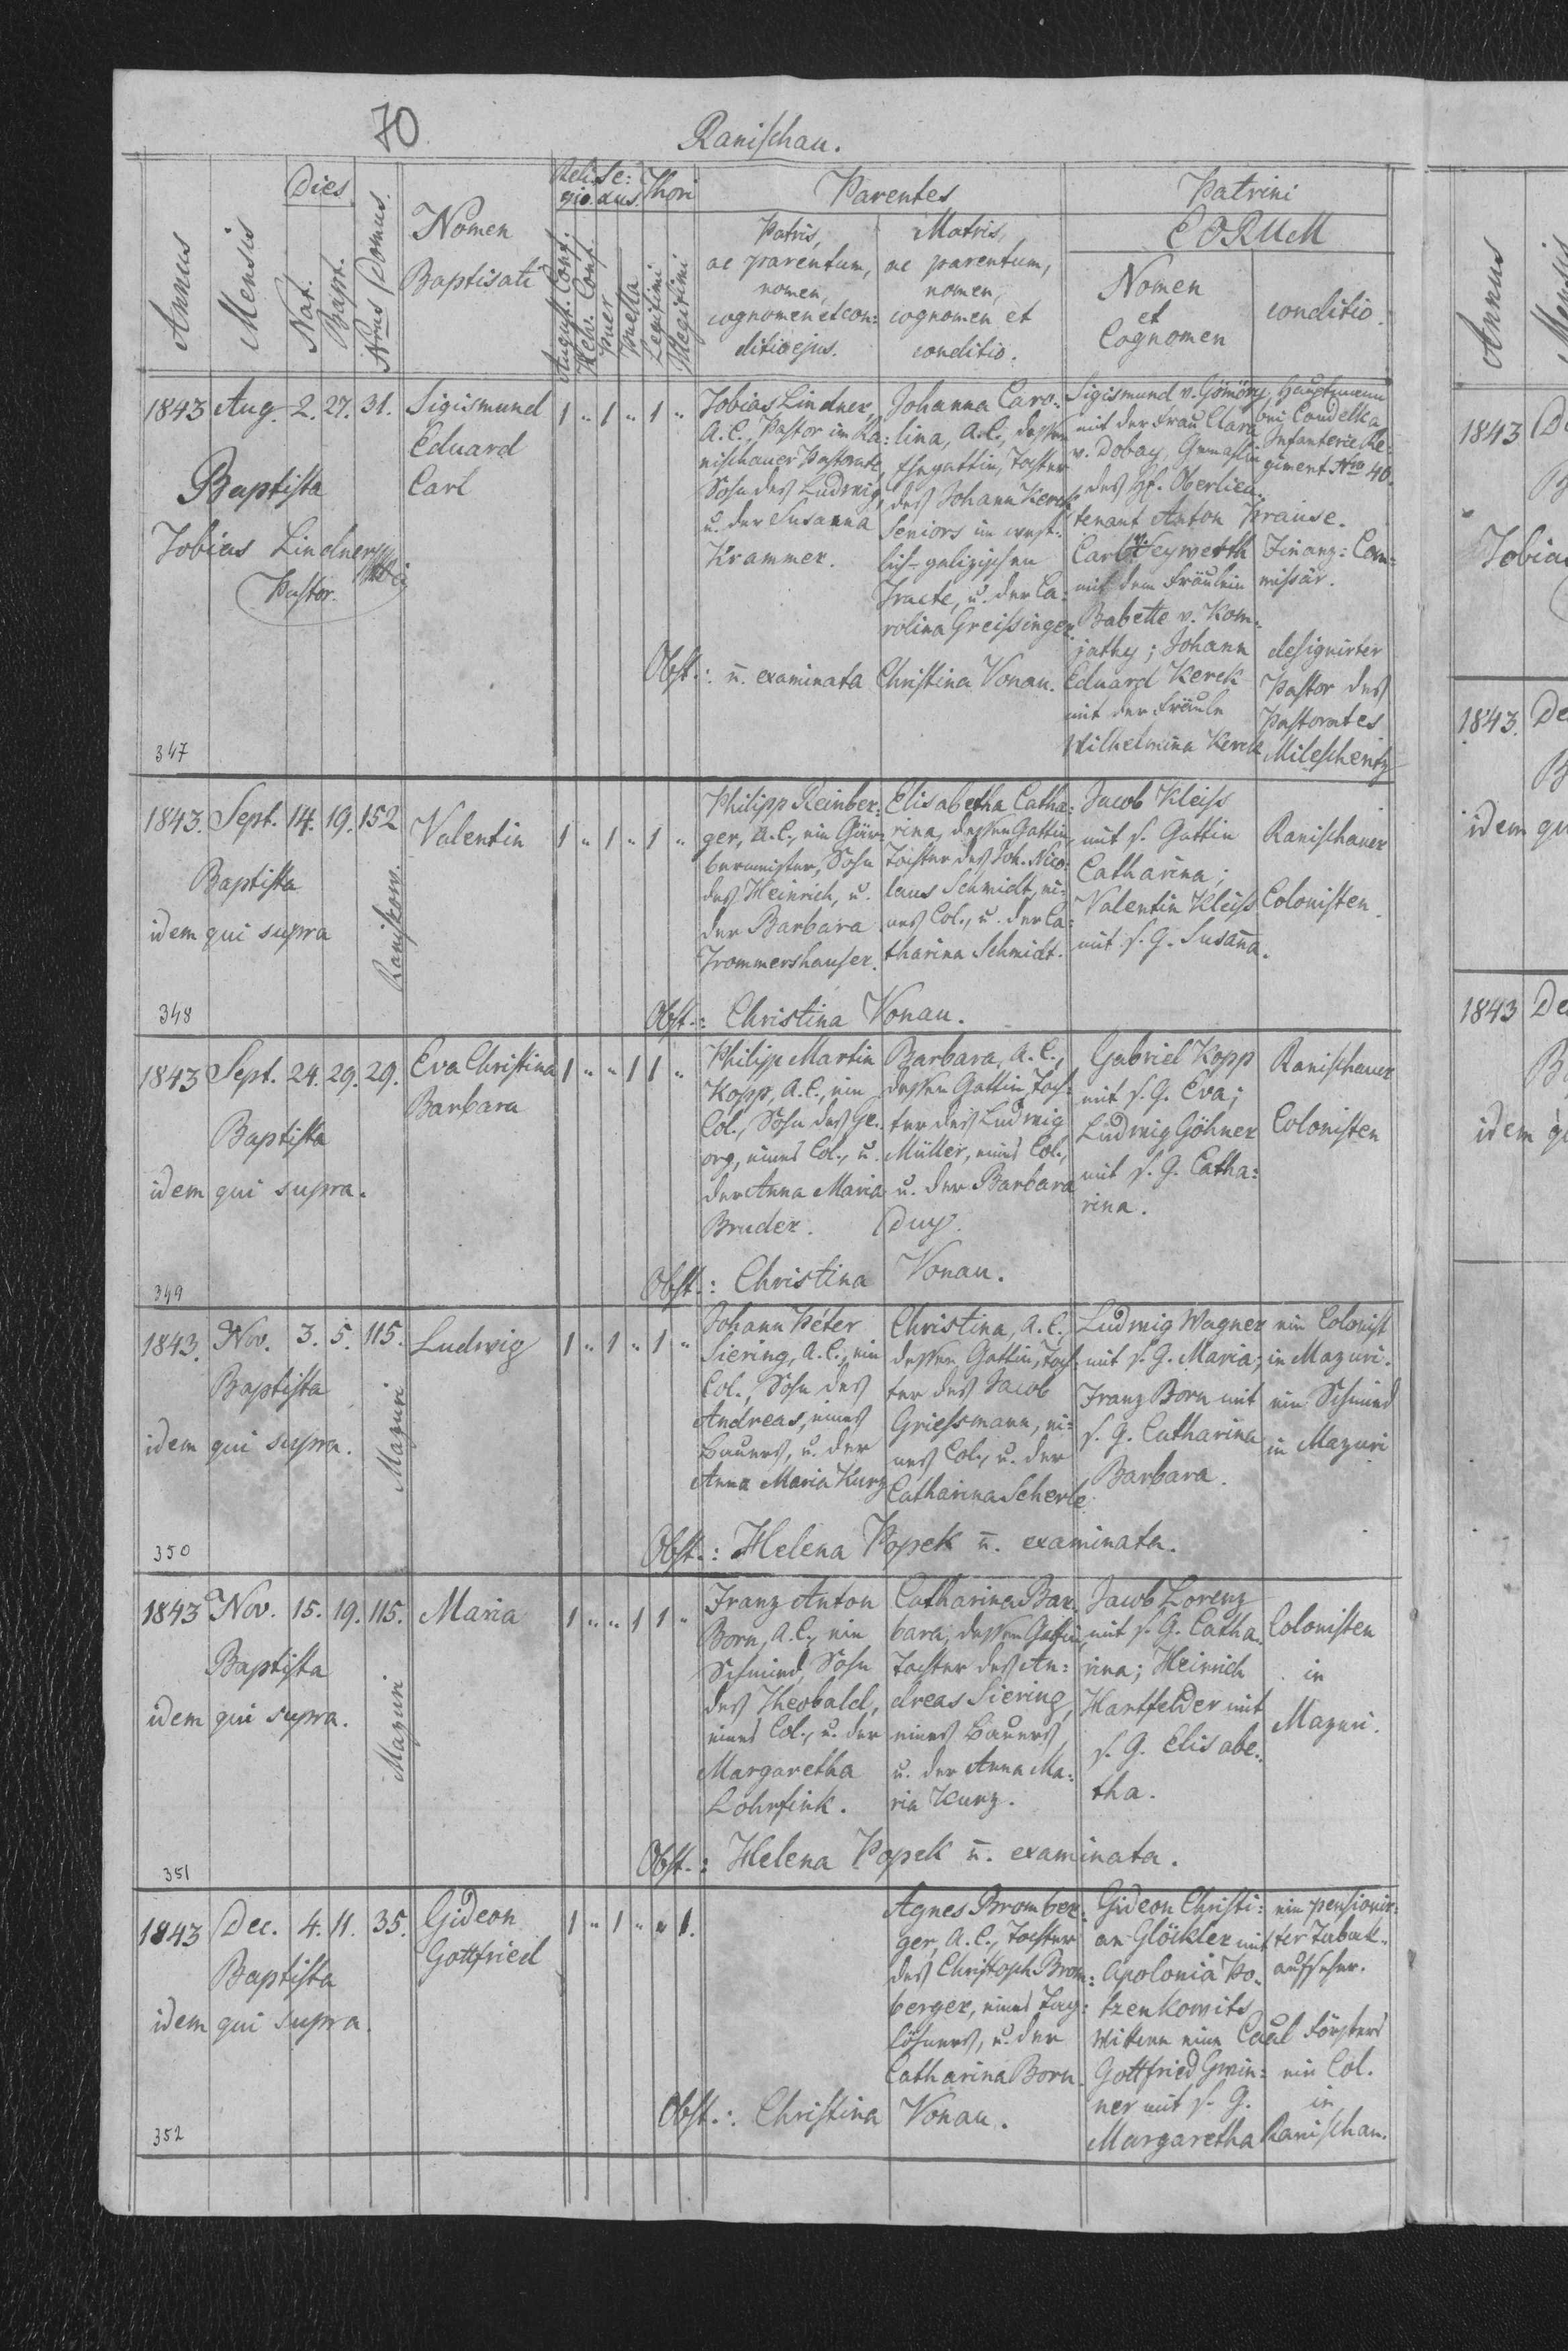 70
Ranischau.
Annus
Mensis
Dies
Nat.
Bapt.
Nrus Domus.
Nomen
Baptisati
Religio.
Sexus.
Thori
August. Conf.
Helv. Conf.
puer
puella
Legitimi
Illegitimi
Parentes
Patris,
ac parentum,
nomen,
cognomen et con-
ditio ejus.
Matris,
ac parentum,
nomen,
cognomen et
conditio.
Patrini
EORUM
Nomen
et
Cognomen
conditio.
1843 Aug. 2. 27. 31. Sigismund
Eduard
Carl
1 " 1 " 1 "
Baptista
Tobias Lindner
Pastor.
Tobias Lindner,
A. C., Pastor im Ra-
nischauer Pastorate,
Sohn des Ludwig,
u. der Susanna
Krammer.
Johanna Caro-
lina, A. C., dessen
Ehegattin, Tochter
des Johann Kerek
Seniors im west-
lich-galizischen
Tracte, u. der Ca-
rolina Greissinger.
Sigismund v. Gömöry, Hauptmann
mit der Frau Clara bei Coudelka
v. Dobay, Gemahlin Infanterie Re-
des H. Oberlieu- giment Nro 40.
tenant Anton Krause.
Carl Heywerth Finanz-Com-
mit dem Fräulein missär.
Babette v. Kom-
jathy; Johann designirter
Eduard Kerek Pastor des
mit der Fräule Pastorates
Wilhelmina Kerek Mileschentz
Obst.: n. examinata Christina Vonau.
347
1843. Sept. 14. 19. 152 Valentin 1 " 1 " 1 "
Raniskow.
Baptista
idem qui supra
Philipp Reinber-
ger, A. C., ein Gär-
bermeister, Sohn
des Heinrich, u.
der Barbara
Trommershauser.
Elisabetha Catha-
rina, dessen Gattin,
Tochter des Joh. Nico-
laus Schmidt, ei-
nes Col., u. der Ca-
tharina Schmidt.
Jacob Kleiss
mit s. Gattin
Catharina;
Valentin Kleiss
mit s. G. Susanna.
Ranischauer
Colonisten.
Obst.: Christina Vonau.
348
1843 Sept. 24. 29. 29. Eva Christina
Barbara
1 " " 1 1 "
Baptista
idem qui supra.
Philipp Martin
Kopp, A. C., ein
Col., Sohn des Ge-
org, eines Col., u.
der Anna Maria
Bruder.
Barbara, A. C.,
dessen Gattin, Toch-
ter des Ludwig
Müller, eines Col.,
u. der Barbara
Duy.
Gabriel Kopp
mit s. G. Eva;
Ludwig Göhner
mit s. G. Catha-
rina.
Ranischauer
Colonisten
Obst.: Christina Vonau.
349
1843. Nov. 3. 5. 115. Ludwig 1 " 1 " 1 "
Mazuri
Baptista
idem qui supra.
Johann Peter
Siering, A. C., ein
Col., Sohn des
Andreas, eines
Bauers, u. der
Anna Maria Kurz
Christina, A. C.,
dessen Gattin, Toch-
ter des Jacob
Griessmann, ei-
nes Col., u. der
Catharina Scherle
Ludwig Wagner
mit s. G. Maria;
Franz Born mit
s. G. Catharina
Barbara.
ein Colonist
in Mazuri.
ein Schmied
in Mazuri
Obst.: Helena Popek n. examinata.
350
1843 Nov. 15. 19. 115. Maria 1 " " 1 1 "
Mazuri
Baptista
idem qui supra.
Franz Anton
Born, A. C., ein
Schmied, Sohn
des Theobald,
eines Col., u. der
Margaretha
Lohrfink.
Catharina Bar-
bara, dessen Gattin,
Tochter des An-
dreas Siering,
eines Bauers,
u. der Anna Ma-
ria Kurz.
Jacob Lorenz
mit s. G. Catha-
rina; Heinrich
Hartfelder mit
s. G. Elisabe-
tha.
Colonisten
in
Mazuri.
Obst.: Helena Popek n. examinata.
351
1843 Dec. 4. 11. 35. Gideon
Gottfried
1 " 1 " " 1.
Baptista
idem qui supra.
Agnes Bromber-
ger, A. C., Tochter
des Christoph Brom-
berger, eines Tag-
löhners, u. der
Catharina Born.
Gideon Christi-
an Glöckler mit
Apolonia Po-
tzenkowits
Wittwe eines Caal Försters
Gottfried Gwin-
ner mit s. G.
Margaretha
ein pensionir-
ter Tabak-
aufseher.
ein Col.
in
Ranischau.
Obst.: Christina Vonau.
352
Annus
1843
Tobia
1843. De
idem qu
1843 De
idem q